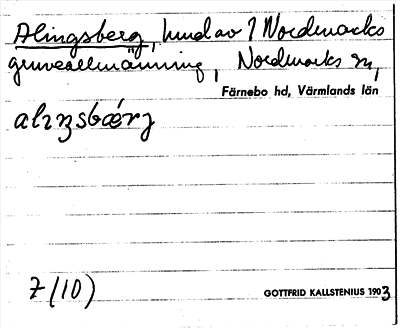 Alingsberg, hmd av ? Nordmarks
gruveallmänning, Nordmarks sn,
Färnebo hd, Värmlands län
alıŋsbærj
7 (10)
GOTTFRID KALLSTENIUS 1903